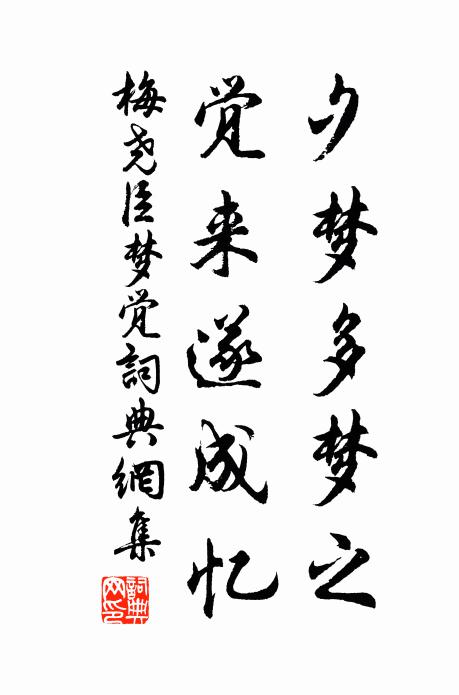 夕梦多梦之
觉来遂成忆
梅尧臣梦觉詞典網集
詞典网印